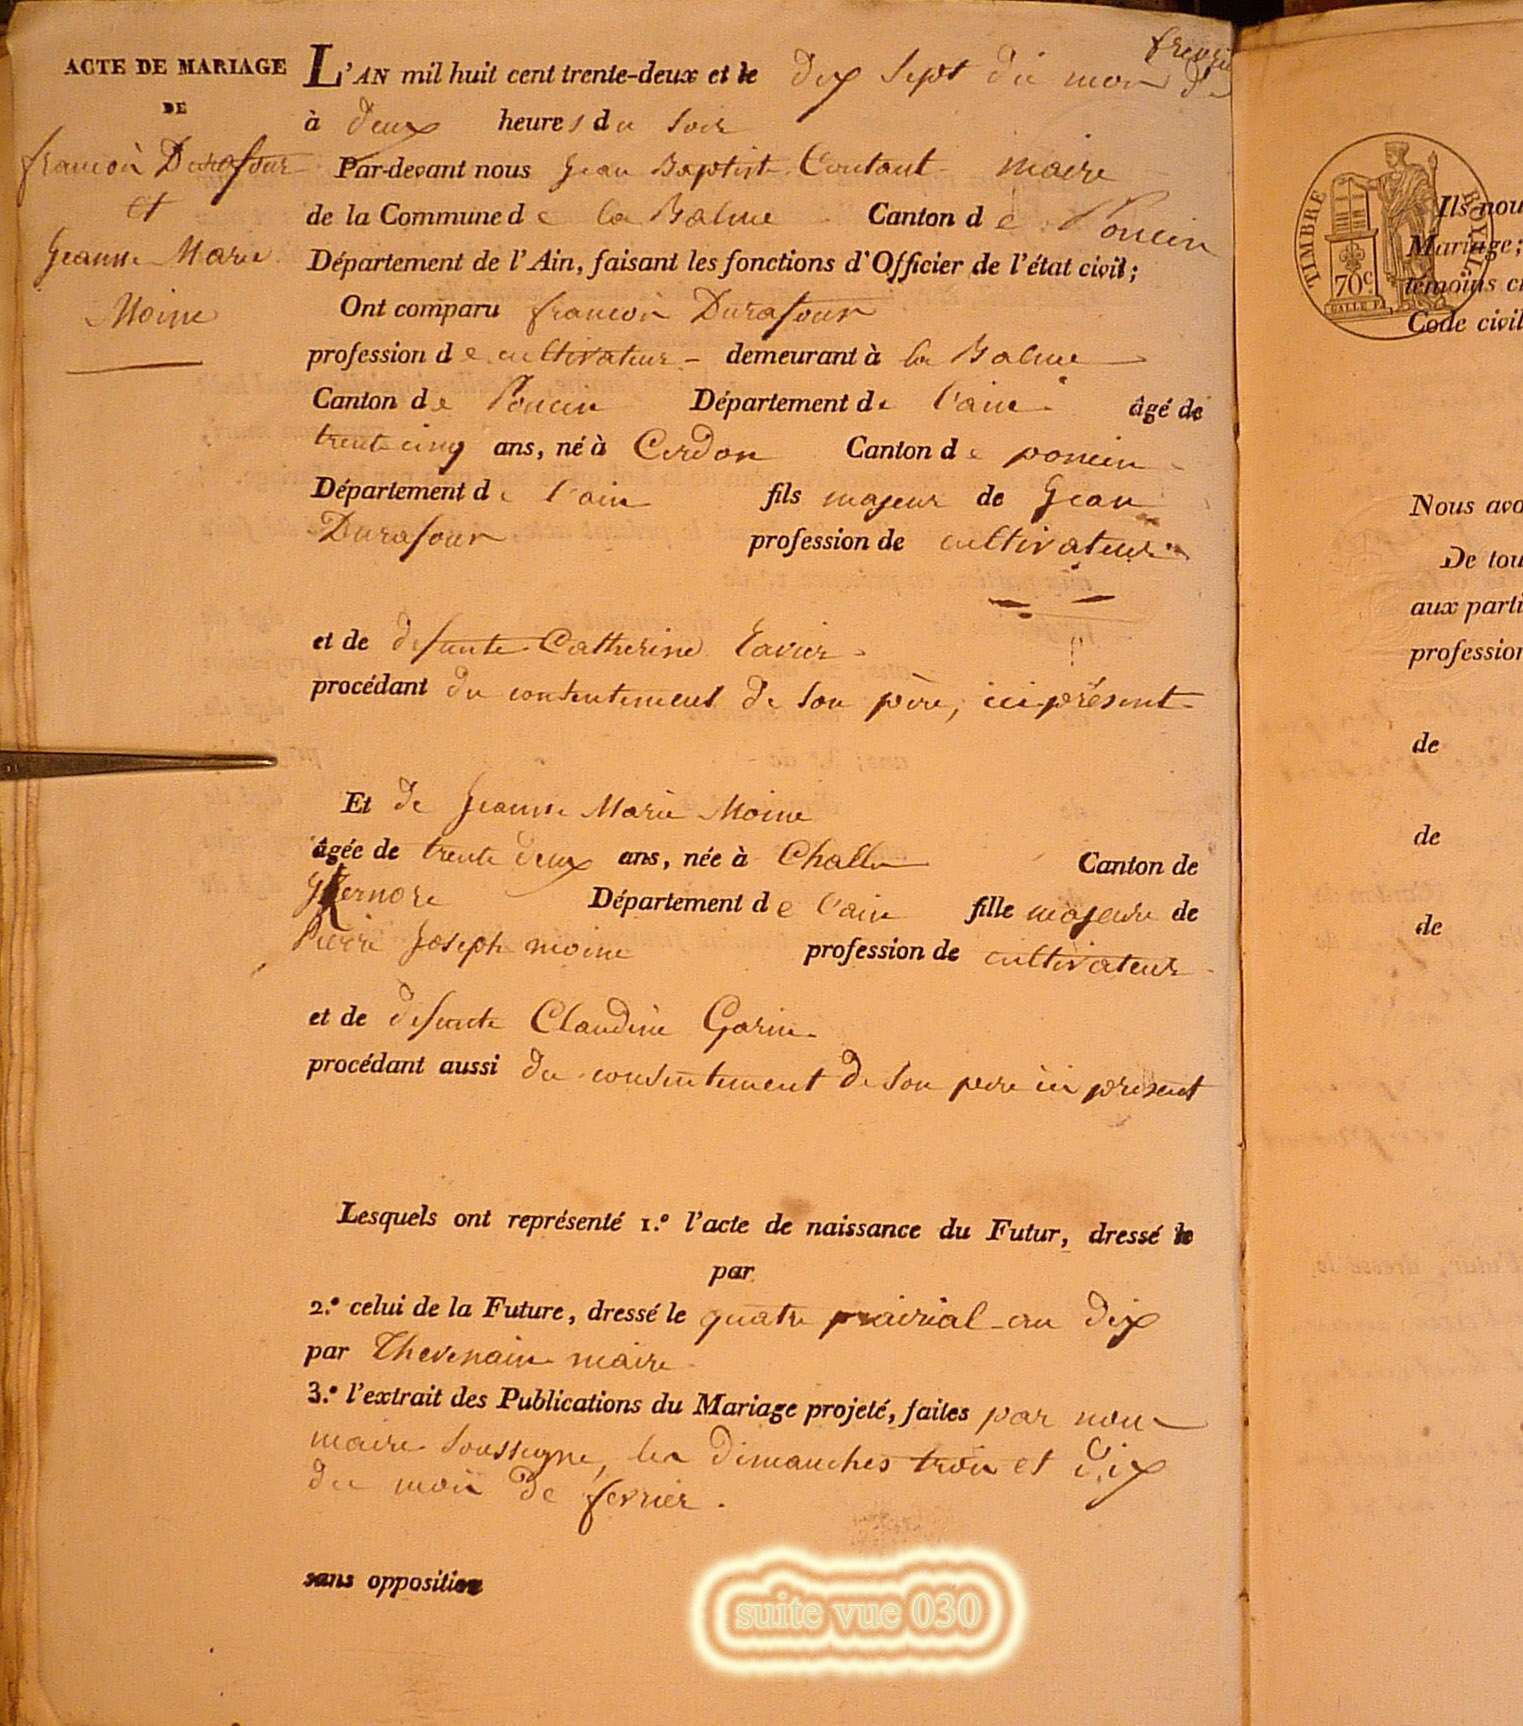 ACTE DE MARIAGE
DE
françois Durafour
et
Jeanne Marie
Moine
L'AN mil huit cent trente-deux et le dix sept du mois de fevrier
à deux heures du soir
Par-devant nous Jean Baptiste Coutant maire
de la Commune de la Balme Canton de Poncin
Département de l'Ain, faisant les fonctions d'Officier de l'état civil;
Ont comparu françois Durafour
profession de cultivateur demeurant à la Balme
Canton de Poncin Département de l'ain âgé de
trente cinq ans, né à Cerdon Canton de poncin
Département de l'ain fils majeur de Jean
Durafour profession de cultivateur
et de defunte Catherine Tavier
procédant du consentement de son père, ici présent
Et de Jeanne Marie Moine
âgée de trente deux ans, née à Challes Canton de
Yzernore Département de l'ain fille majeure de
Pierre Joseph moine profession de cultivateur
et de defunte Claudine Garin
procédant aussi du consentement de son pere ici present
Lesquels ont représenté 1.º l'acte de naissance du Futur, dressé le
par
2.º celui de la Future, dressé le quatre prairial an dix
par Thevenain maire
3.º l'extrait des Publications du Mariage projeté, faites par nous
maire soussigné, les dimanches trois et dix
du mois de fevrier.
sans opposition
suite vue 030
TIMBRE ROYAL
70c
Ils nou
Mariage;
témoins ci
Code civil
Nous avo
De tou
aux parti
profession
de
de
de